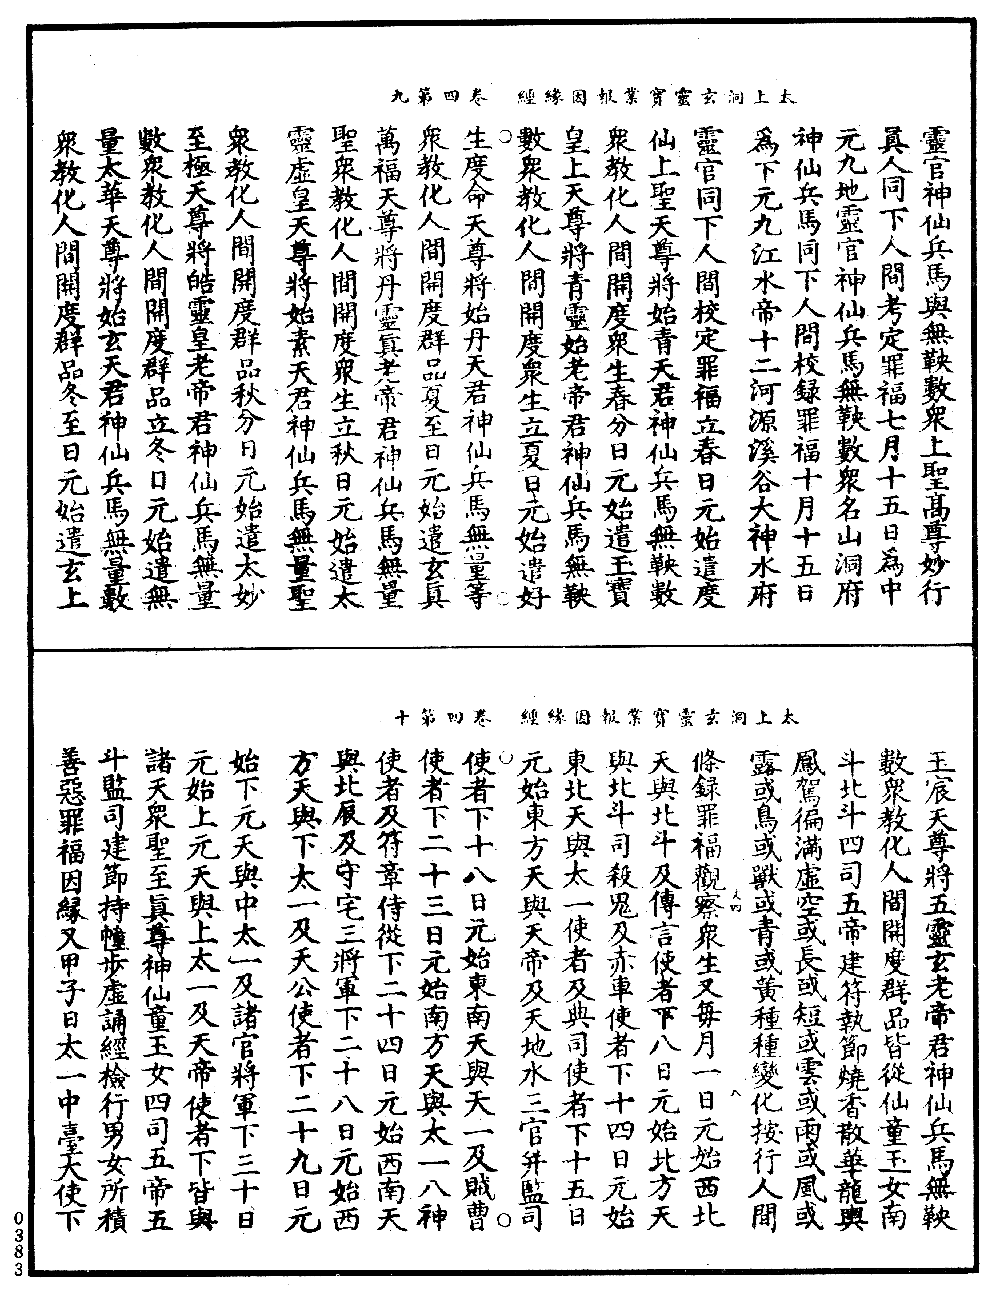 太上洞玄靈寶業報因緣經　卷四第九
靈官神仙兵馬與無鞅數衆上聖髙尊妙行
真人同下人間考定罪福七月十五日爲中
元九地靈官神仙兵馬無鞅數衆名山洞府
神仙兵馬同下人間校録罪福十月十五日
爲下元九江水帝十二河源溪谷大神水府
靈官同下人間校定罪福立春日元始遣度
仙上聖天尊將始青天君神仙兵馬無鞅數
衆教化人間開度衆生春分日元始遣玉寶
皇上天尊將青靈始老帝君神仙兵馬無鞅
數衆教化人間開度衆生立夏日元始遣好
生度命天尊將始丹天君神仙兵馬無量等
衆教化人間開度群品夏至日元始遣玄真
萬福天尊將丹靈真老帝君神仙兵馬無量
聖衆教化人間開度衆生立秋日元始遣太
靈虛皇天尊將始素天君神仙兵馬無量聖
衆教化人間開度群品秋分日元始遣太妙
至極天尊將皓靈皇老帝君神仙兵馬無量
數衆教化人間開度群品立冬日元始遣無
量太華天尊將始玄天君神仙兵馬無量數
衆教化人間開度群品冬至日元始遣玄上
太上洞玄靈寶業報因緣經　卷四第十
玉宸天尊將五靈玄老帝君神仙兵馬無鞅
數衆教化人間開度群品皆從仙童玉女南
斗北斗四司五帝建符執節燒香散華龍輿
鳳駕徧滿虛空或長或短或雲或雨或風或
露或鳥或獸或青或黃種種變化按行人間
條録罪福觀察衆生又每月一日元始西北
天與北斗及傳言使者下八日元始北方天
與北斗司殺鬼及赤車使者下十四日元始
東北天與太一使者及典司使者下十五日
元始東方天與天帝及天地水三官并監司
使者下十八日元始東南天與天一及賊曹
使者下二十三日元始南方天與太一八神
使者及符章侍從下二十四日元始西南天
與北辰及守宅三將軍下二十八日元始西
方天與下太一及天公使者下二十九日元
始下元天與中太一及諸官將軍下三十日
元始上元天與上太一及天帝使者下皆與
諸天衆聖至真尊神仙童玉女四司五帝五
斗監司建節持幢步虛誦經檢行男女所積
善惡罪福因緣又甲子日太一中臺大使下
0383